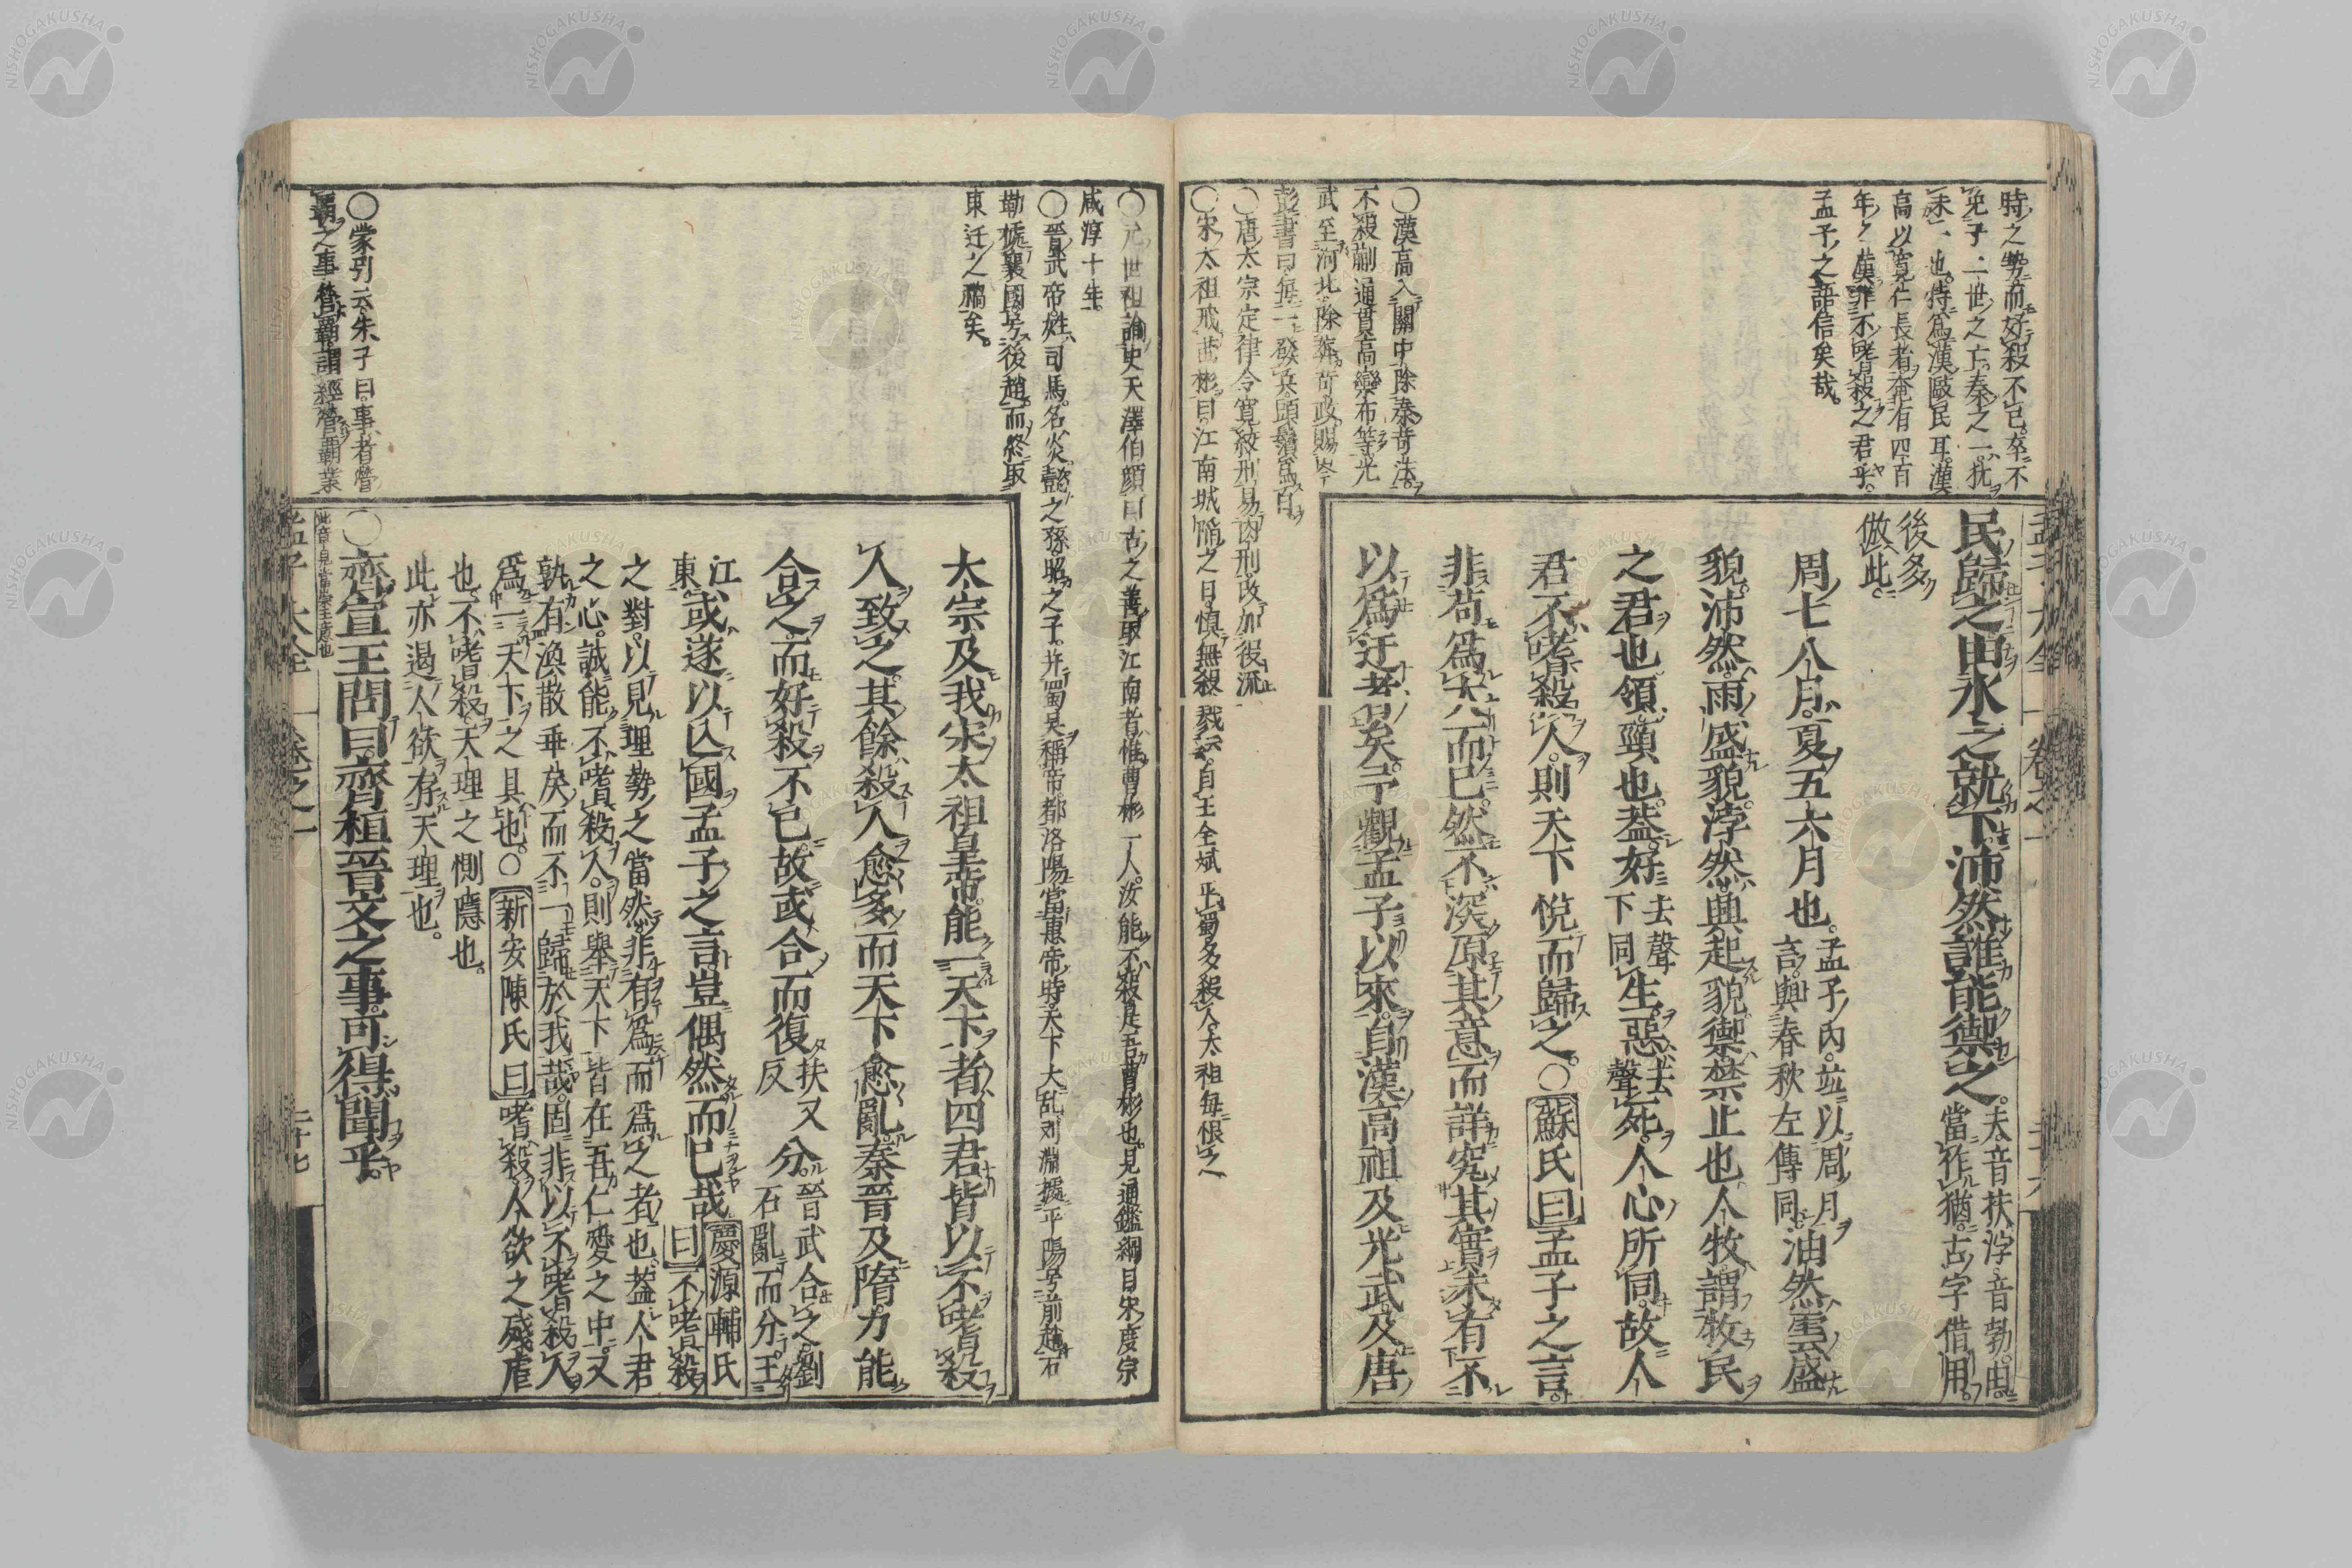 時之勢而好殺不已卒不
免子二世之亡秦之一犹
未一也特爲漢敺民耳漢
高以寬仁長者奄有四百
年之漢非不嗜殺之君乎
孟子之語信矣哉
〇漢高入關中除秦苛法
不殺蒯通貫高欒布等光
武至河北除莽苛政賜岑
彭書曰每一發兵頭鬚爲百
〇唐太宗定律令寬絞刑易肉刑政加役流
〇宋太祖戒曹彬曰江南城陷之日慎無殺戮云自王全斌平蜀多殺人太祖每恨之
孟子大全 卷之一 二十六
民歸之由水之就下沛然誰能禦之
夫音扶浡音勃由
當作猶古字借用
後多
倣此
周七八月夏五六月也
孟子内並以周月
言與春秋左傳同
油然雲盛
貌沛然雨盛貌浡然興起貌禦禁止也人牧謂牧民
之君也領頸也蓋好
去聲
下同
生惡
去
聲
死人心所同故人
君不嗜殺人則天下悅而歸之〇蘇氏曰孟子之言
非苟爲大而已然不深原其意而詳究其實未有不
以爲迂者矣予觀孟子以來自漢高祖及光武及唐
〇元世祖諭史天澤伯顔曰古之善取江南者惟曹彬一人汝能不殺是吾曹彬也見通鑑綱目宋度宗
咸淳十年
〇晉武帝姓司馬名炎懿之孫昭之子并蜀吳稱帝都洛陽當惠帝時天下大乱刘淵據平陽号前趙石
勒據襄國号後趙而終取
東迁之禍矣
〇蒙引云朱子曰事者營
霸之事營霸謂經營霸業
太宗及我宋太祖皇帝能一天下者四君皆以不嗜殺
人致之其餘殺人愈多而天下愈亂秦晉及隋力能
合之而好殺不已故或合而復
扶又
反
分
晉武合之劉
石亂而分王
江
東
或遂以亡國孟子之言豈偶然而已哉
慶源輔氏
曰不嗜殺
之對以見理勢之當然非有爲而爲之者也蓋人君
之心誠能不嗜殺人則舉天下皆在吾仁變之中又
孰有渙散乖戾而不一歸於我哉固非以不嗜殺人
爲一天下之具也〇新安陳氏曰嗜殺人欲之殘虐
也不嗜殺天理之惻隱也
此亦遏人欲存天理也
〇齊宣王問曰齊桓晉文之事可得聞乎
孟子大全 卷之一 二十七